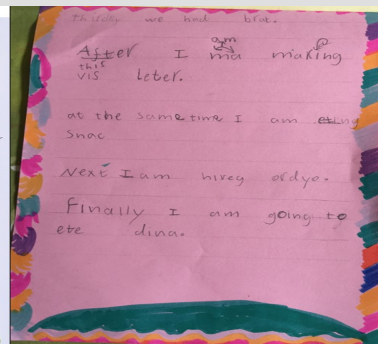 thirdly we had brat.
am
After I ma making
this
vis leter.
at the same time I am eting
snac
Next I am hireg ordyo.
Finally I am going to
ete dina.